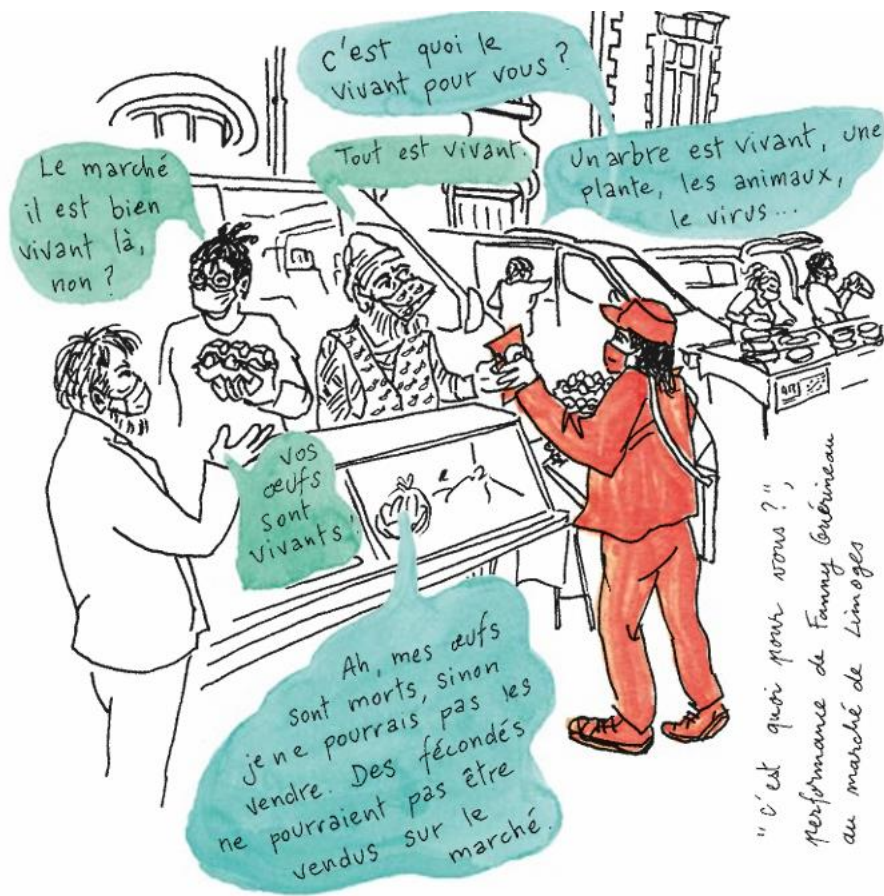 C'est quoi le
vivant pour vous ?
Le marché
il est bien
vivant là,
non ?
Tout est vivant.
Un arbre est vivant, une
plante, les animaux,
le virus...
Vos
œufs
sont
vivants !
Ah, mes œufs
sont morts, sinon
je ne pourrais pas les
vendre. Des fécondés
ne pourraient pas être
vendus sur le
marché.
"C'est quoi pour vous ?",
performance de Fanny Guérineau
au marché de Limoges